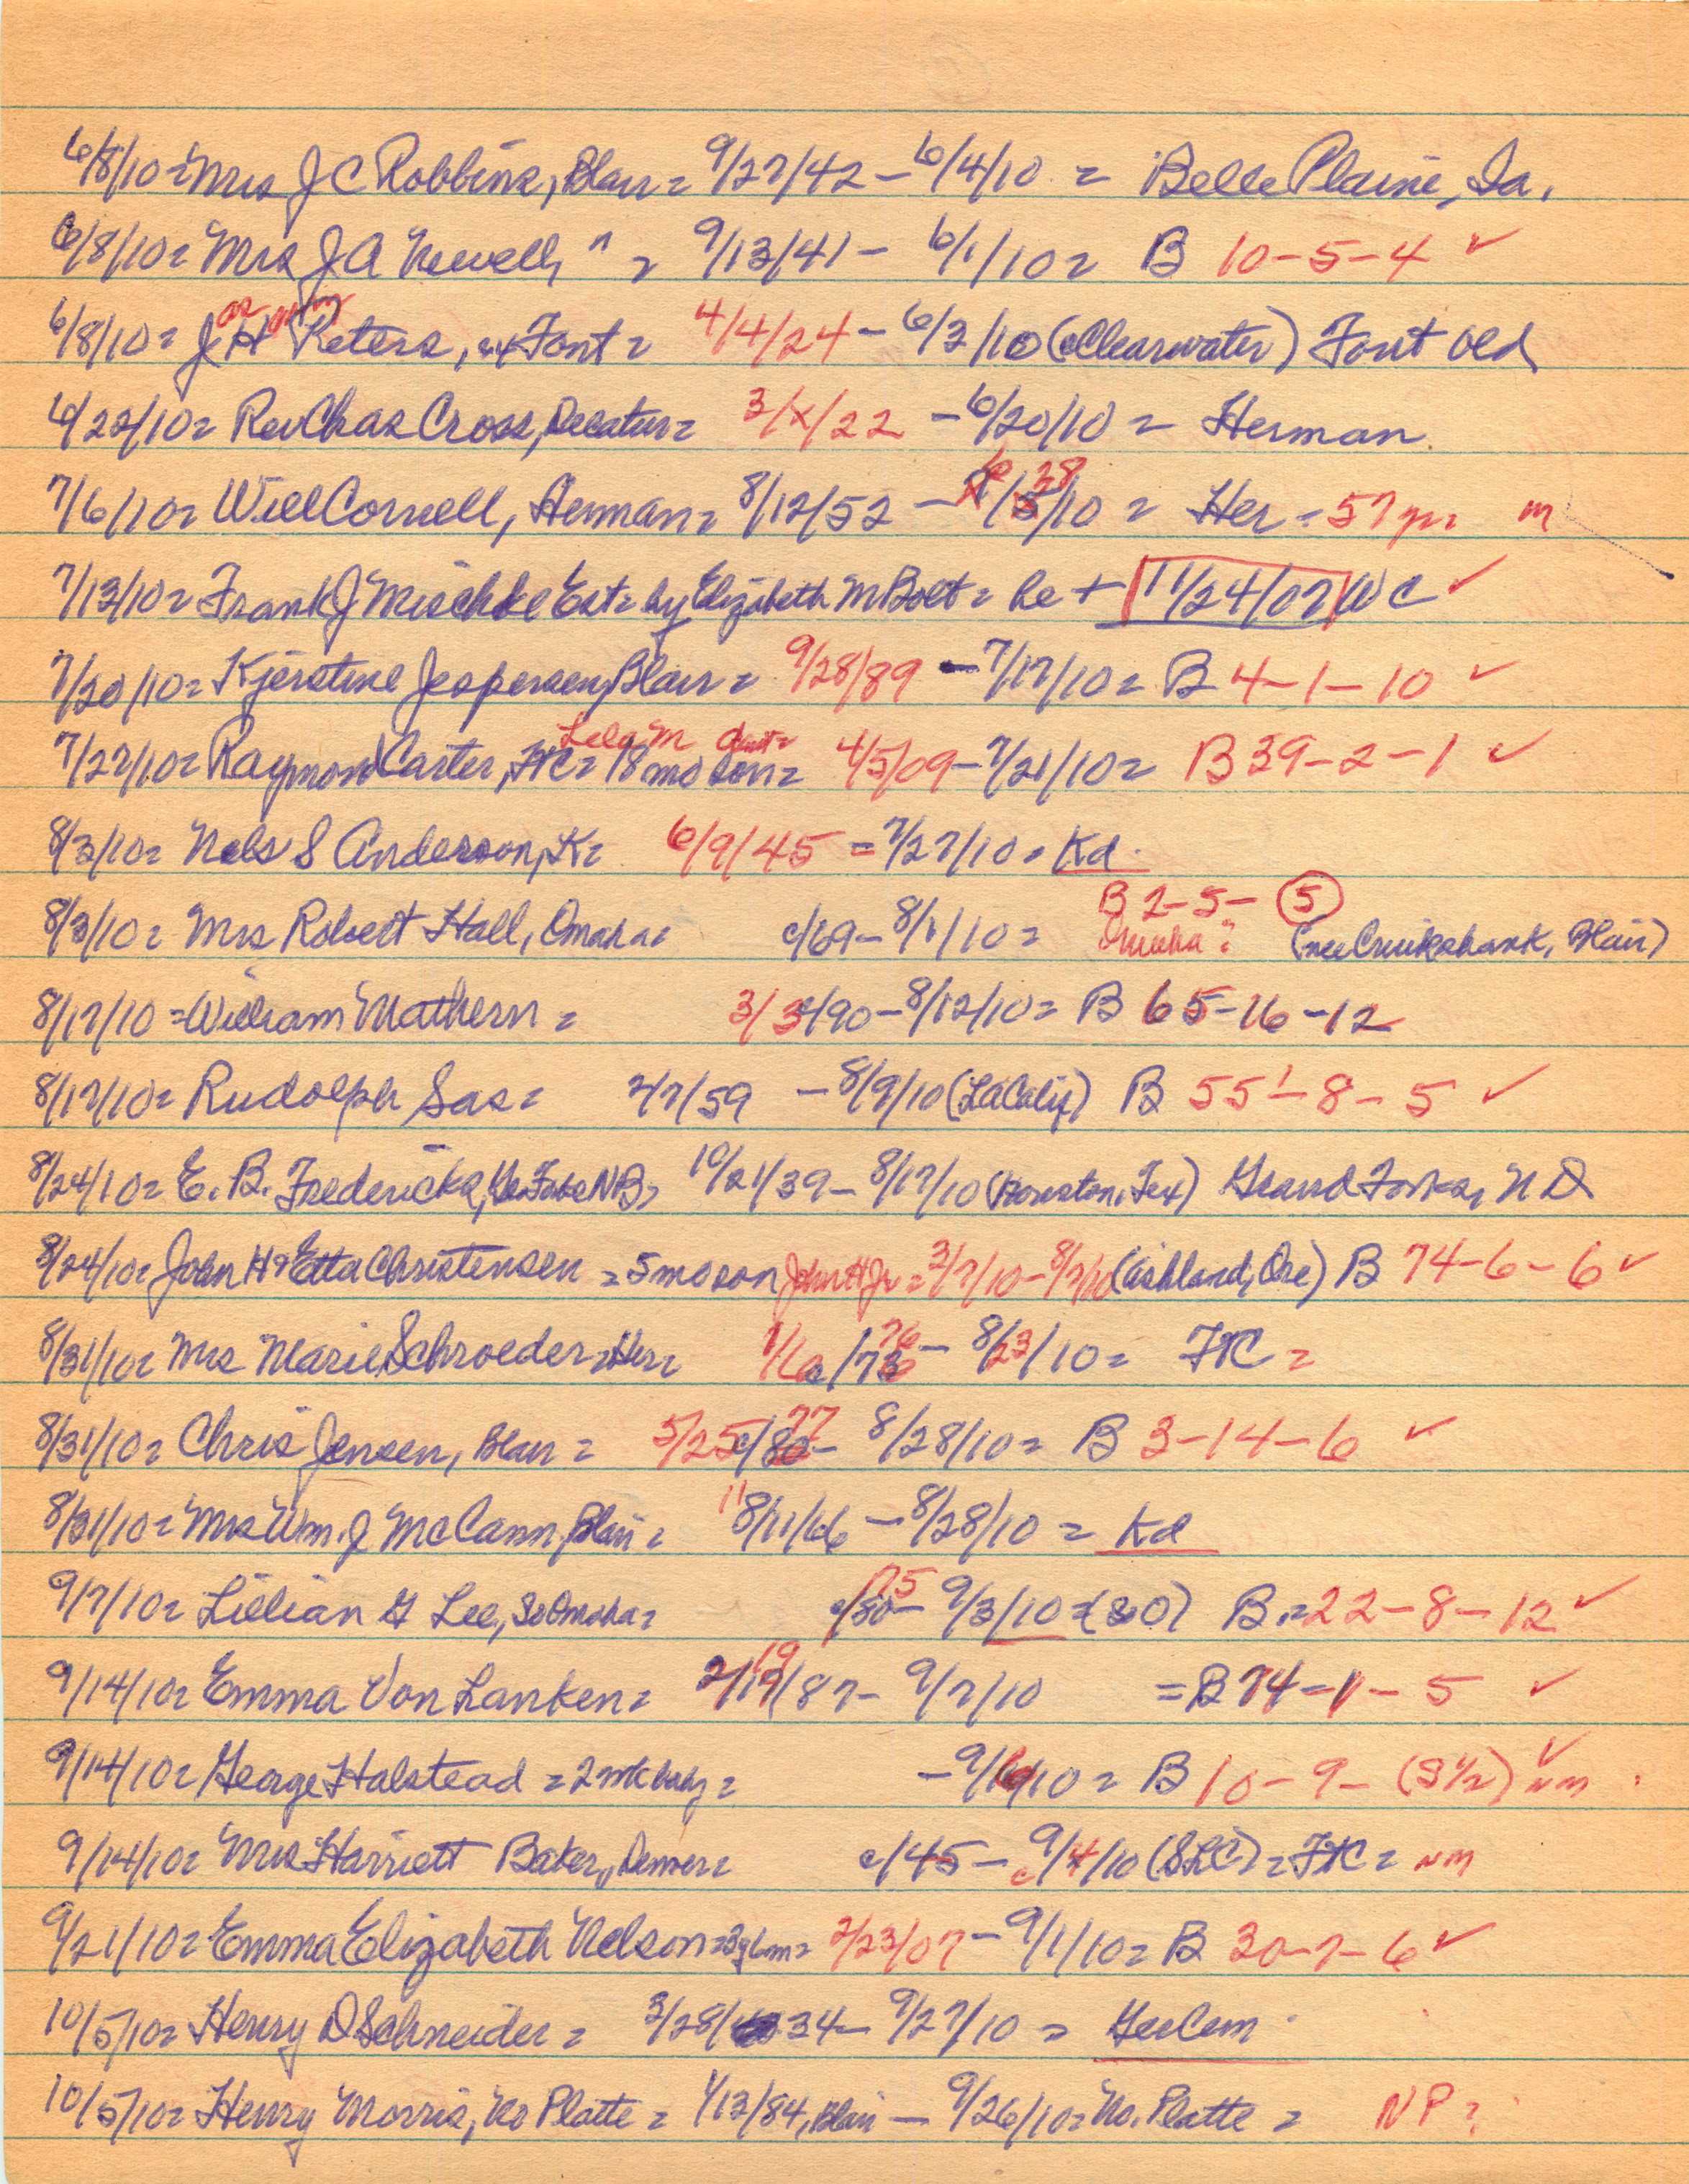 6/8/10= Mrs J C Robbins, Blair = 9/27/42 - 6/4/10 = Belle Plaine, Ia.
6/8/10= Mrs J A Newell, " = 9/13/41 - 6/1/10= B 10-5-4 ✓
6/8/10= J H Peters, Font = 4/4/24 - 6/3/10 (Clearwater) Font old
6/22/10= Rev Chas Cross, Decatur= 3/x/22 - 6/20/10 = Herman
7/6/10= Will Cornell, Herman= 8/12/52 - 6/28/10 = Her = 57 yr= m
7/13/10= Frank J Mischke Est= by Elizabeth M Bolt= Re + 11/24/07 W C ✓
7/20/10= Kjerstine Jespersen, Blair = 9/28/89 - 7/17/10= B 4-1-10 ✓
Lela M daut=
7/27/10= Raymond Carter, FtC= 18 mo son= 4/5/09 - 7/21/10= B 39-2-1 ✓
8/3/10= Nels S Anderson, K= 6/9/45 = 7/27/10 = Kd
B 2-5- 5
8/3/10= Mrs Robert Hall, Omaha= c/69 - 8/1/10= Omaha? (nee Cruikshank, Blair)
8/17/10 = William Mathern = 3/3/90 - 8/12/10= B 65-16-12
8/17/10= Rudolph Sas= 2/7/59 - 8/9/10 (LA Calif) B 55-8-5 ✓
8/24/10= E. B. Fredericks, NB= 10/21/39 - 8/17/10 (Houston, Tex) Grand Forks, N D
8/24/10= John H & Etta Christensen = 5 mo son John H Jr = 3/7/10 - 8/7/10 (Ashland, Ore) B 74-6-6 ✓
8/31/10= Mrs Marie Schroeder = Her= 76 - 8/23/10= FtC =
8/31/10= Chris Jensen, Blair = 5/25/77 - 8/28/10= B 3-14-6 ✓
8/31/10= Mrs Wm. J McCann, Blair = 11 8/11/66 - 8/28/10 = Kd
9/7/10= Lillian G Lee, So Omaha= c/80 75 - 9/3/10 = (SO) B.=22-8-12 ✓
9/14/10= Emma Von Lanken= 2/19/87 - 9/7/10 = B 74-1-5 ✓
9/14/10= George Halstead = 2 wk baby = - 9/ /10 = B 10-9-(S½) nm ✓
9/14/10= Mrs Harriett Baker, Denver= c/45 - c 9/4/10 (SLC) = FtC = nm
9/21/10= Emma Elizabeth Nelson=3y6m= 2/23/07 - 9/1/10= B 30-7-6 ✓
10/5/10= Henry D Schneider = 3/28/34 - 9/27/10 = Ger Cem
10/5/10= Henry Morris, No Platte = 1/13/84, Blair - 9/26/10= No. Platte = NP?